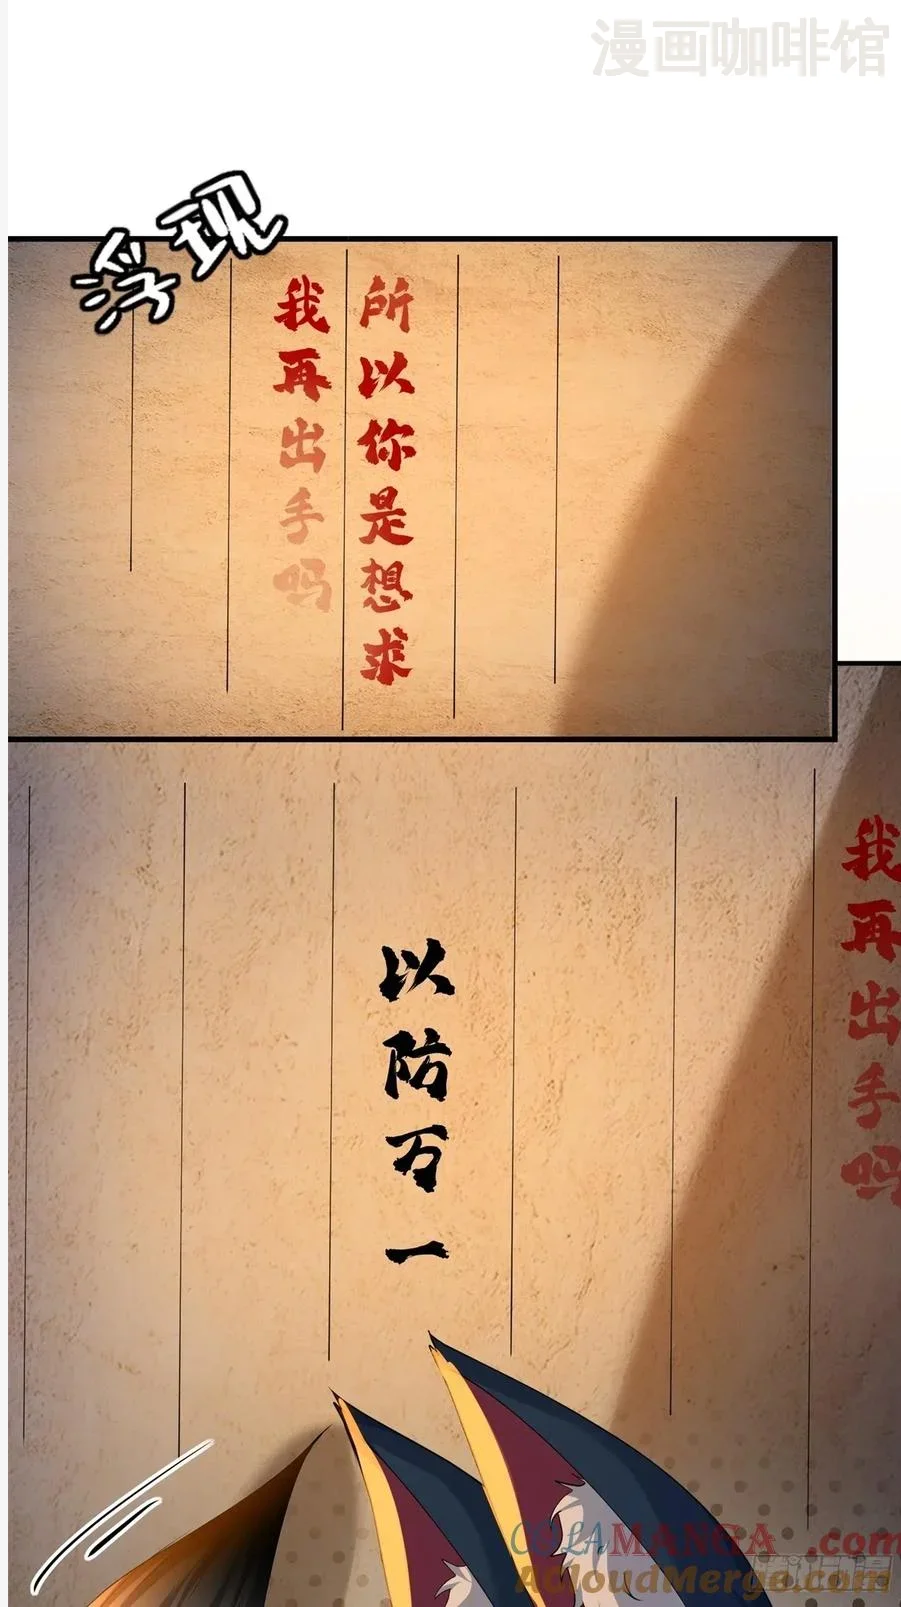 漫画咖啡馆
浮现
所以你是想求
我再出手吗
我再出手吗
以防万一
COLAMANGA.com
ACloudMerge.com